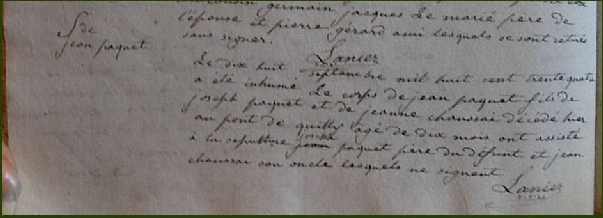 cousin germain, jacques Le marié père de
l'épouse et pierre gerard ami lesquels se sont retirés
sans signer.
Lanier
S de
jean paquet.
Le dix huit septembre mil huit cent trente quatre
a été inhumé Le corps de jean paquet fils de
joseph paquet et de jeanne chaussai décédé hier
au pont de quilly agé de dix mois ont assisté
à la sepulture joseph paquet père du défunt et jean
chaussai son oncle lesquels ne signent
Lanier